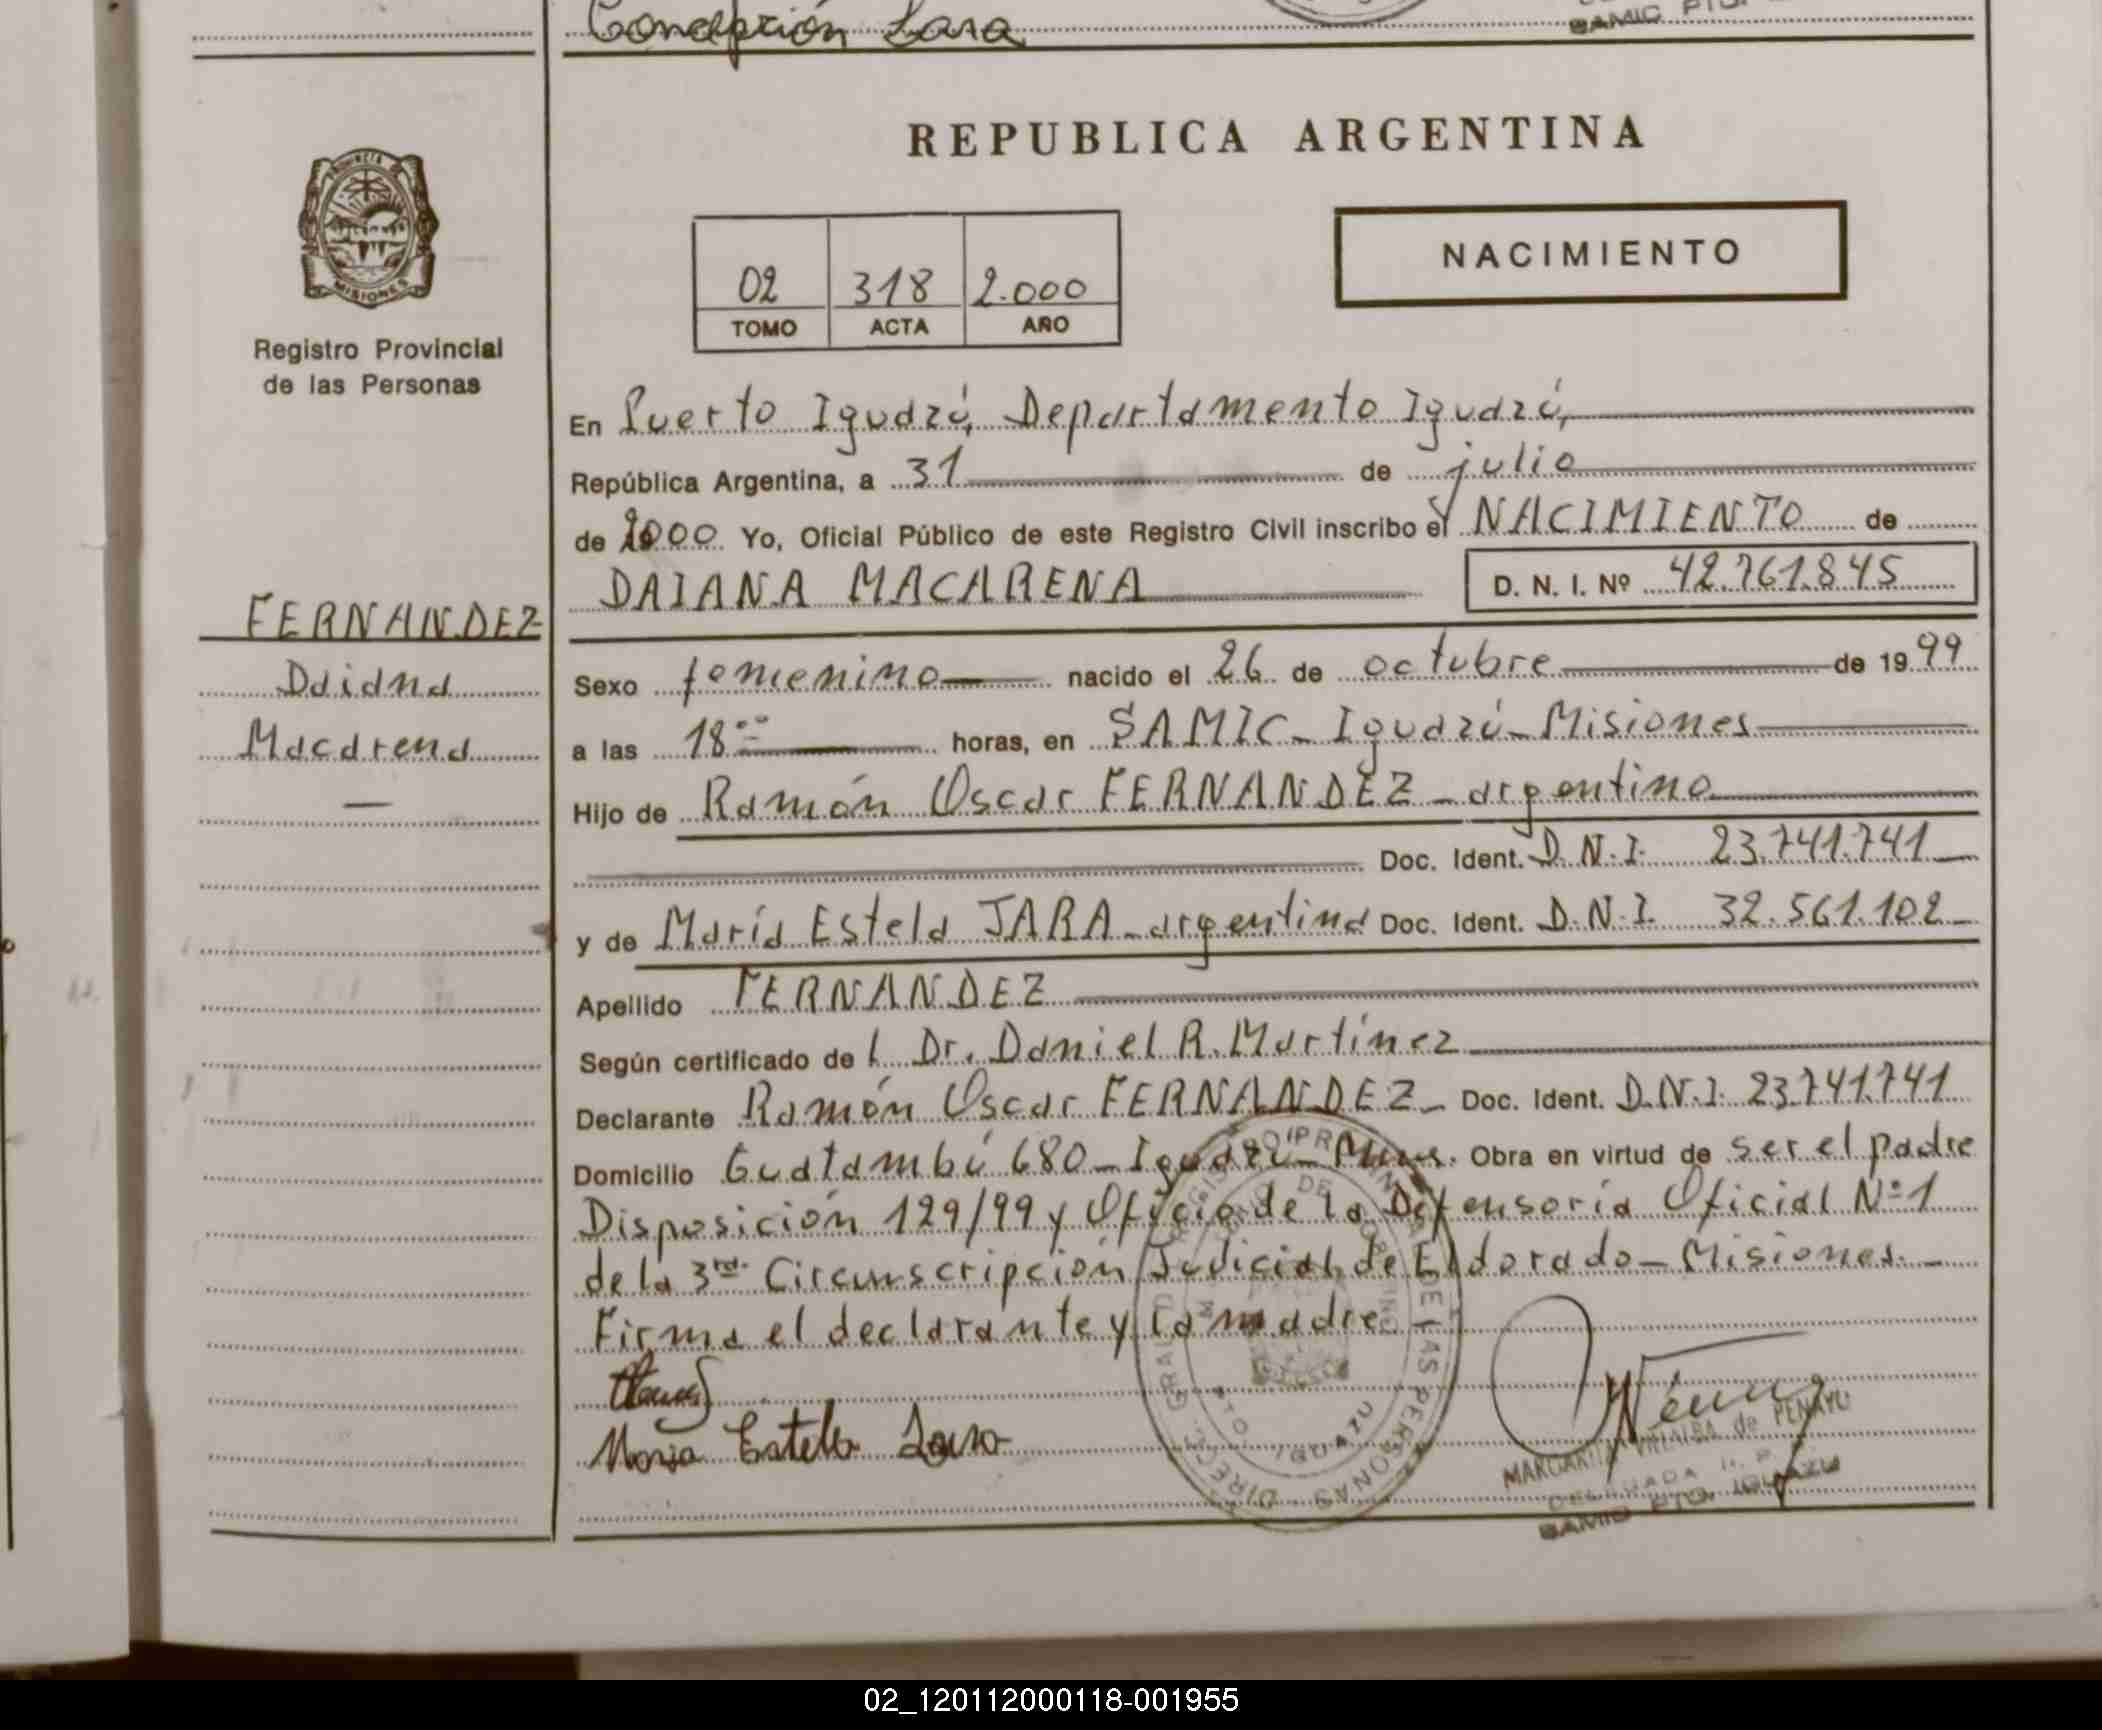 Concepción Lara
SAMIC PTO.
PROVINCIA DE
MISIONES
Registro Provincial
de las Personas
REPUBLICA ARGENTINA
NACIMIENTO
02 318 2.000
TOMO ACTA AÑO
En Puerto Iguazú, Departamento Iguazú,
República Argentina, a 31 de julio
de 2000 Yo, Oficial Público de este Registro Civil inscribo el NACIMIENTO de
DAIANA MACARENA D. N. I. Nº 42.761.845
FERNANDEZ
Daiana
Macarena
Sexo femenino nacido el 26 de octubre de 1999
a las 18 horas, en SAMIC - Iguazú - Misiones
Hijo de Ramón Oscar FERNANDEZ - argentino
Doc. Ident. D.N.I. 23.741.741
y de María Estela JARA - argentina Doc. Ident. D.N.I. 32.561.102
Apellido FERNANDEZ
Según certificado de l Dr. Daniel R. Martínez
Declarante Ramón Oscar FERNANDEZ - Doc. Ident. D.N.I. 23.741.741
Domicilio Guatambú 680 - Iguazú - Mnes. Obra en virtud de ser el padre
Disposición 129/99 y Oficio de la Defensoría Oficial Nº 1
de la 3ra. Circunscripción Judicial de Eldorado - Misiones.
Firma el declarante y la madre.
Maria Estela Jara
MARGARITA VILLALBA de PENAYO
DELEGADA
SAMIC PTO. IGUAZU
DIREC. GRAL. D REGISTRO PROVINCIAL DE LAS PERSONAS
PTO. IGUAZU
02_120112000118-001955